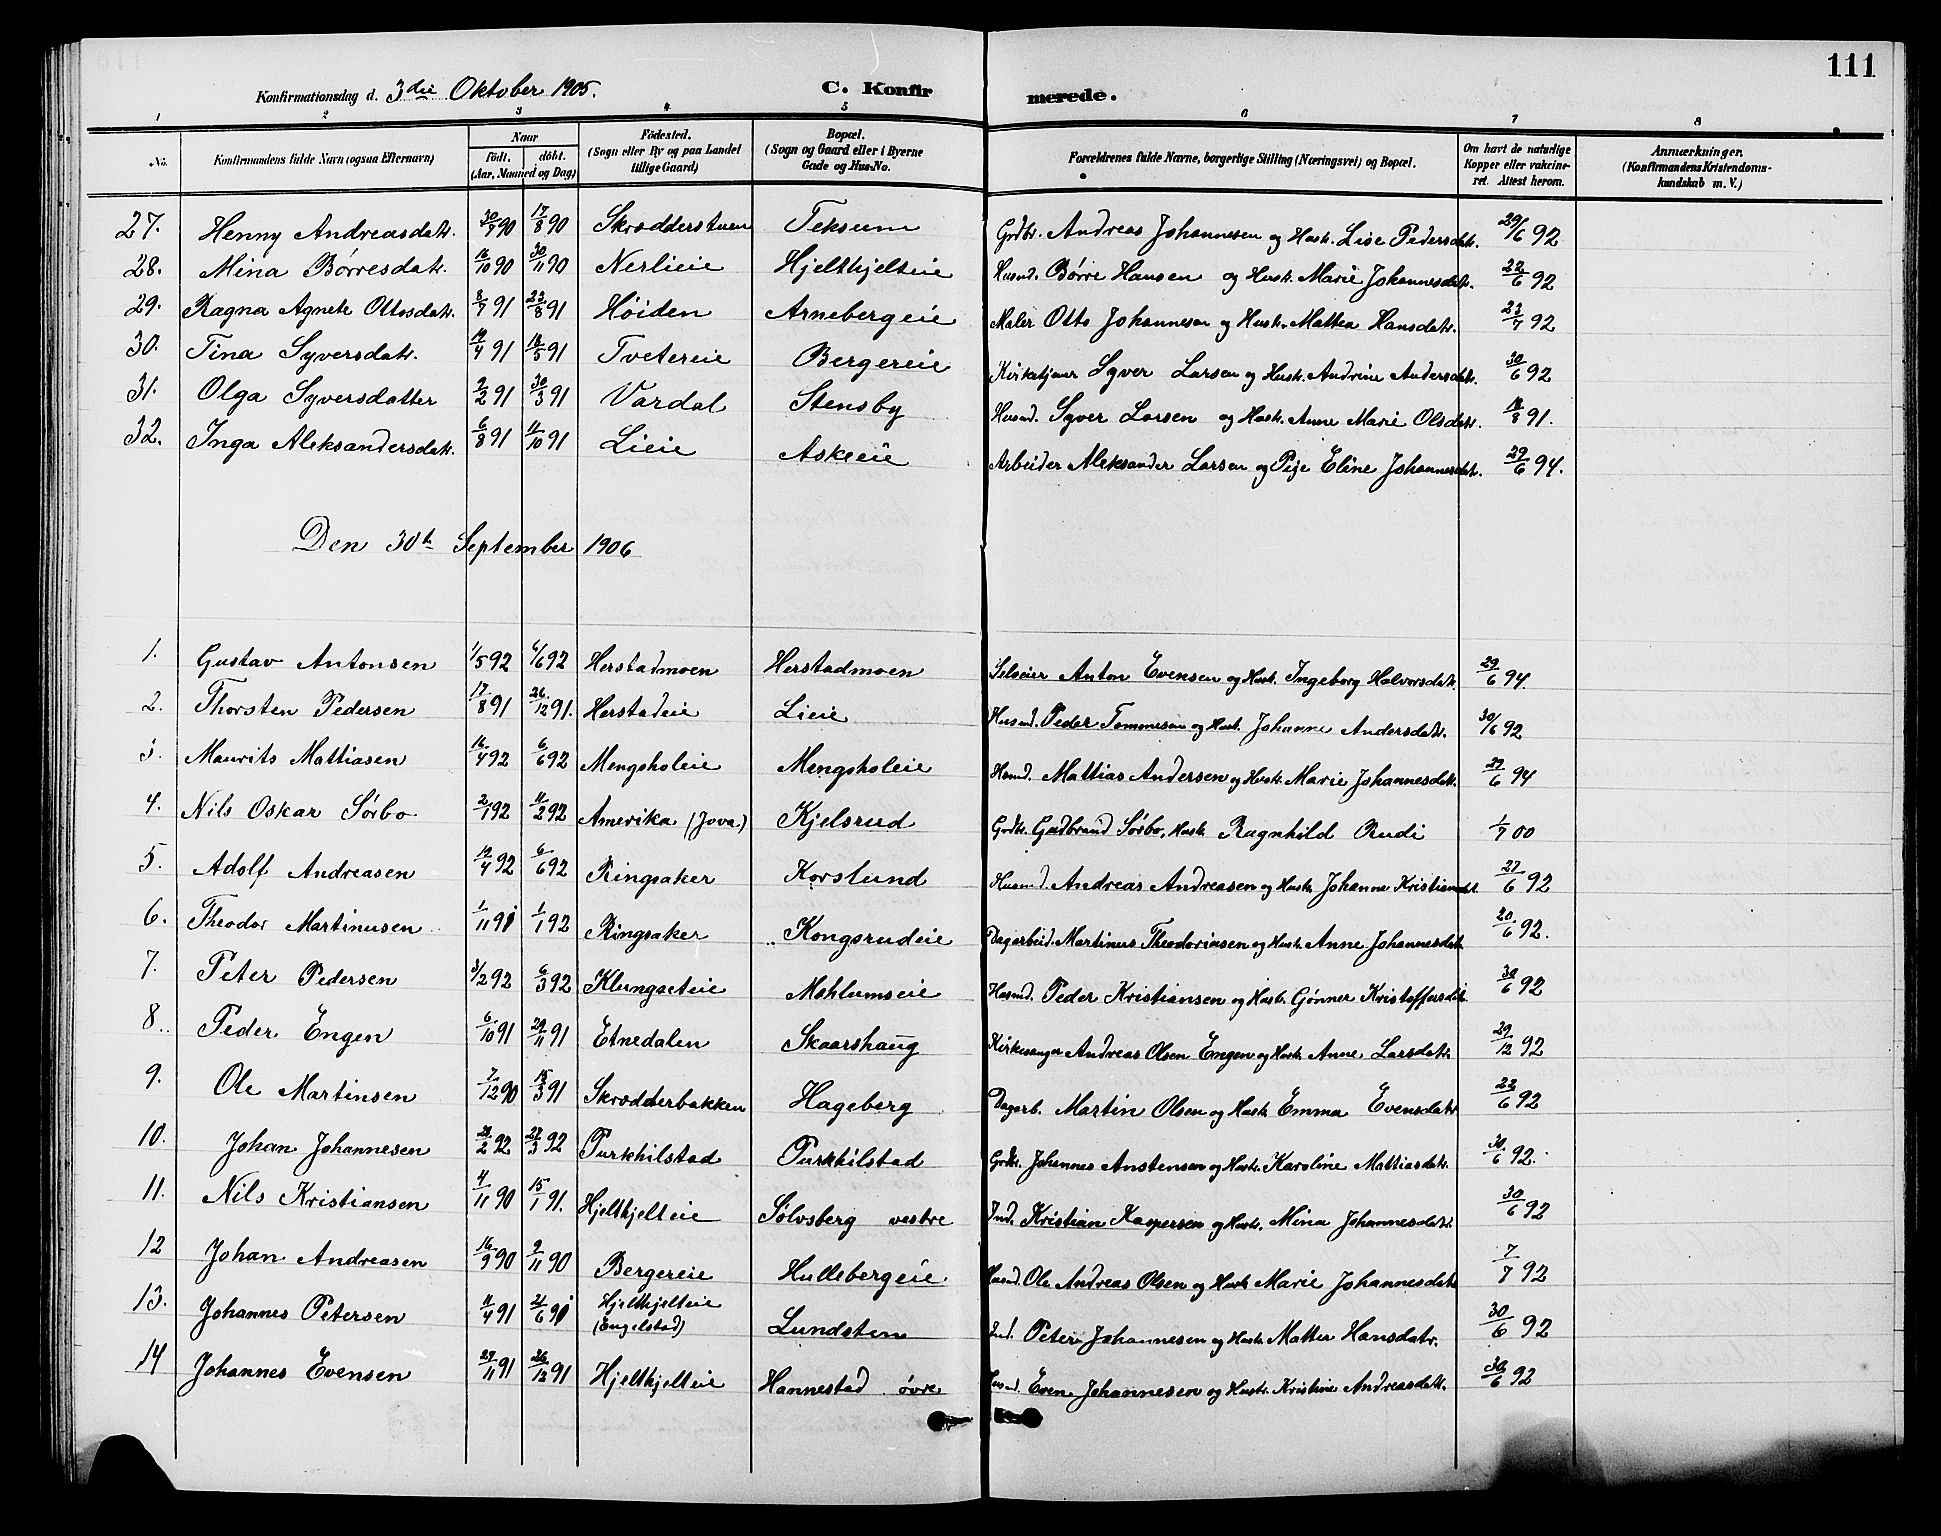 111
Konfirmationsdag d. 3die Oktober 1905. C. Konfirmerede.
1 2 3 4 5 6 7 8
No. Konfirmandens fulde Navn (ogsaa Efternavn) Naar født. døbt. (Aar, Maaned og Dag) Fødested. (Sogn eller By og paa Landet tillige Gaard) Bopæl. (Sogn og Gaard eller i Byerne Gade og Hus-No. Forældrenes fulde Navne, borgerlige Stilling (Næringsvei) og Bopæl. Om havt de naturlige Kopper eller vakcineret. Attest herom. Anmærkninger. (Konfirmandens Kristendomskundskab m. V.)
27. Henny Andreasdatr. 30/7 90 17/8 90 Skrædderstuen Teksum Grdbr. Andreas Johannesen og Hustr. Lise Pedersdatr. 29/6 92
28. Mina Børresdatr. 16/10 90 30/11 90 Nerlieie Hjelthjelteie Husmd. Børre Hansen og Hustr. Marie Johannesdatr. 22/6 92
29. Ragna Agnete Ottosdatr. 8/7 91 23/8 91 Høiden Arnebergeie Maler Otto Johannesen og Hustr. Mathea Hansdatr. 23/7 92
30. Tina Syversdatr. 19/4 91 18/5 91 Tvetereie Bergereie Kirketjener Syver Larsen og Hustr. Andrine Andersdatr. 30/6 92
31. Olga Syversdatter 2/2 91 30/3 91 Vardal Stensby Husmd. Syver Larsen og Hustr. Anne Marie Olsdatr. 18/8 91.
32. Inga Aleksandersdatr. 6/8 91 11/10 91 Lieie Askeeie Arbeider Aleksander Larsen og Pige Eline Johannesdatr. 29/6 94.
Den 30th September 1906
1. Gustav Antonsen 1/5 92 6/6 92 Herstadmoen Herstadmoen Selveier Anton Evensen og Hustr. Ingeborg Halvorsdatr. 29/6 94.
2. Thorsten Pedersen 17/8 91 26/12 91. Herstadeie Lieie Husmd. Peder Tommesen og Hustr. Johanne Andersdatr. 30/6 92
3. Maurits Mattiasen 16/4 92 6/6 92 Mengsholeie Mengsholeie Husmd. Mattias Andersen og Hustr. Marie Johannesdatr. 29/6 94
4. Nils Oskar Sørbo 2/1 92 11/2 92 Amerika (Jova) Kjelsrud Grdbr. Gudbrand Sørbo, Hustr. Ragnhild Rudi 1/7 00
5. Adolf Andreasen 19/4 92 6/6 92 Ringsaker Korslund Husmd. Andreas Andreasen og Hustr. Johanne Kristiansdt. 27/6 92
6. Theodor Martinusen 1/11 91 1/1 92 Ringsaker Kongsrudeie Dagarbeid. Martinus Theodoriusen og Hustr. Anne Johannesdatr. 20/6 92.
7. Peter Pedersen 3/2 92 6/3 92 Klungseteie Mæhlumseie Husmd. Peder Kristiansen og Hustr. Gønner Kristoffersdat. 30/6 92
8. Peder Engen 6/10 91 29/11 91 Etnedalen Skaarshaug Kirkesanger Andreas Olsen Engen og Hustr. Anne Larsdatr. 29/12 92
9. Ole Martinsen 7/12 90 15/3 91 Skrædderbakken Hageberg Dagarb. Martin Olsen og Hustr. Emma Evensdatr. 22/6 92
10. Johan Johannesen 28/2 92 27/3 92 Purkhilstad Purkhilstad Grdbr. Johannes Anstensen og Hustr. Karoline Mattiasdatr. 30/6 92.
11. Nils Kristiansen 4/11 90 15/1 91. Hjelthjelteie Sølvsberg vestre Ind. Kristian Kaspersen og Hustr. Mina Johannesdatr. 30/6 92
12 Johan Andreasen 16/9 90 9/11 90 Bergereie Hullebergeie. Husmd. Ole Andreas Olsen og Hustr. Marie Johannesdatr. 7/7 92
13. Johannes Petersen 11/4 91 21/6 91 Hjelthjelteie (Engelstad) Lundsten Ind. Peter Johannesen og Hustr. Mathea Hansdatr. 30/6 92
14 Johannes Evensen 29/11 91 26/12 91 Hjelthjelteie Hannestad øvre Husmd. Even Johannesen og Hustr. Kristine Andreasdatr. 30/6 92